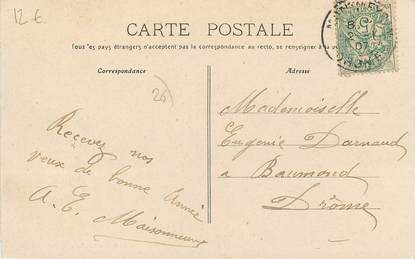 12 €
CARTE POSTALE
Tous les pays étrangers n'acceptent pas la correspondance au recto, se renseigner à la
Correspondance
Adresse
26
Recevez nos
veux de bonne Année
A. E. Maisonneuve
Mademoiselle
Eugenie Darnaud
a Beaumond
Drôme